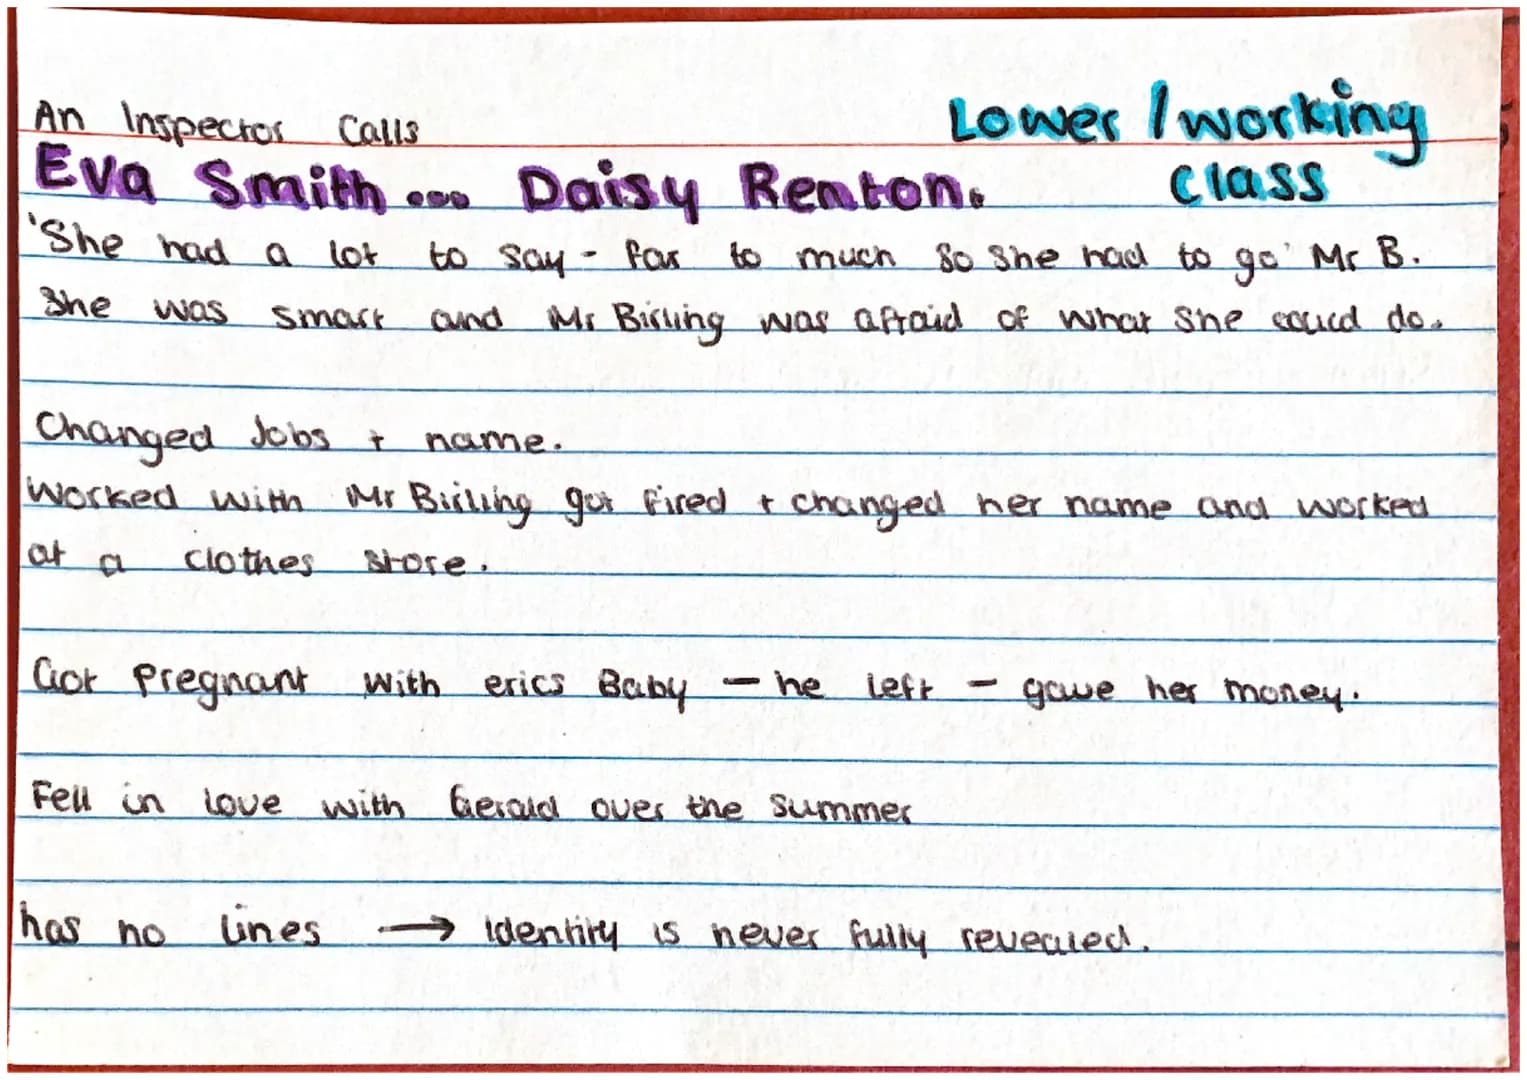 An Inspector Calls
Lower / working
class
Eva Smith... Daisy Renton.
'She had a lot to say - far to much so she had to go' Mr B.
She was smart and Mr Birling was afraid of what she could do.
Changed Jobs + name.
Worked with Mr Birling got fired + changed her name and worked
at a clothes store.
Got pregnant with erics Baby - he left - gave her money.
Fell in love with Gerald over the summer
has no lines → identity is never fully revealed.